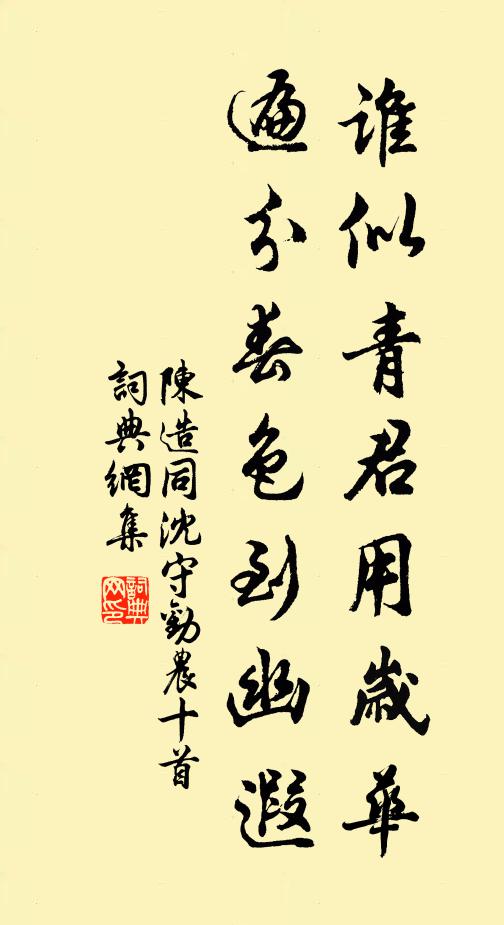 誰似青君用歲華
遍分春色到幽遐
陳造同沈守勸農十首
詞典網集
詞典網印